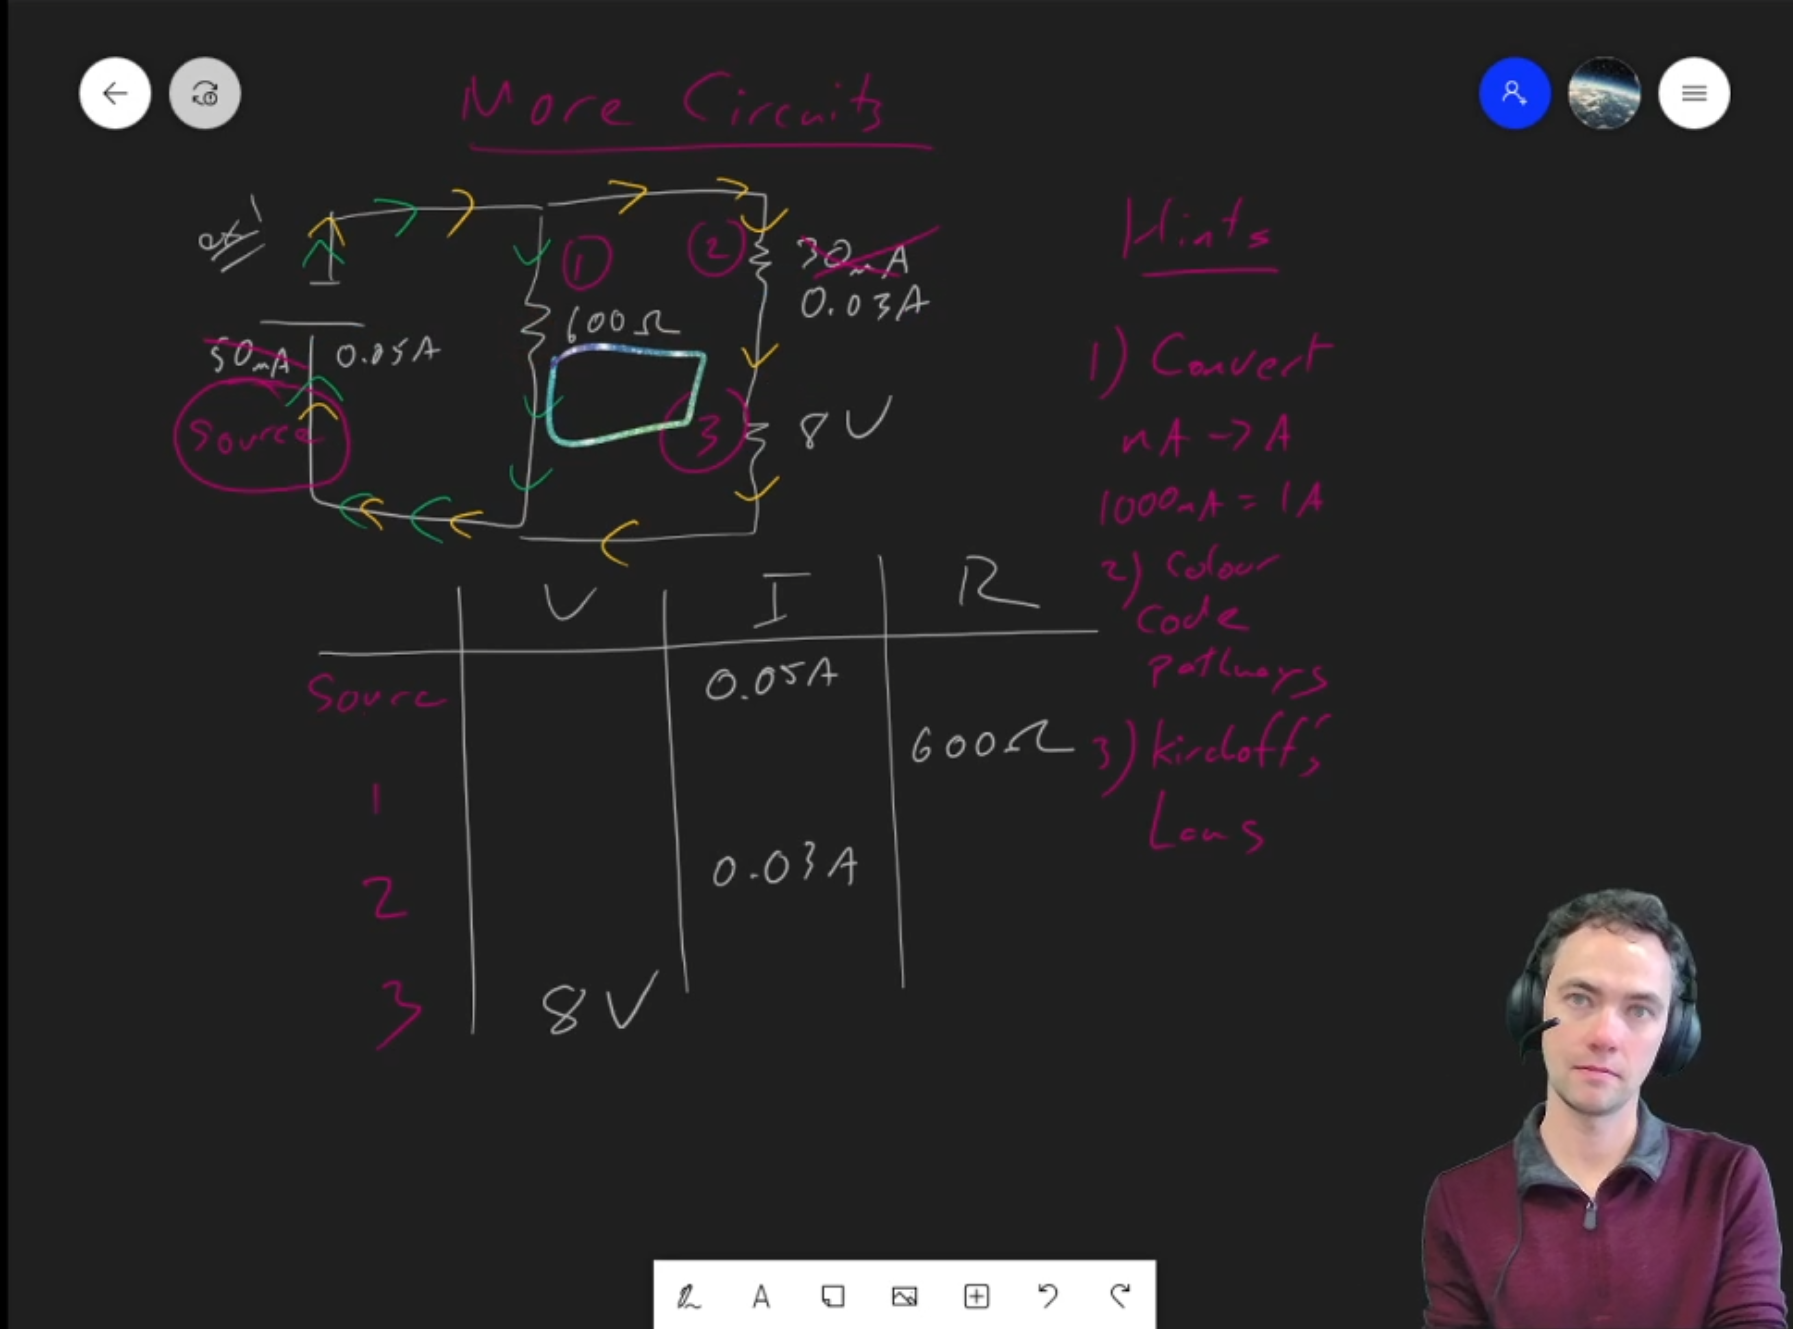 More Circuits
ex!
1
2
30mA
0.03A
600Ω
50mA
0.05A
Source
3
8V
V
I
R
Sourc
0.05A
600Ω
1
2
0.03A
3
8V
Hints
1) Convert
mA -> A
1000mA = 1A
2) Colour
code
pathways
3) Kirchoff's
Laws
A